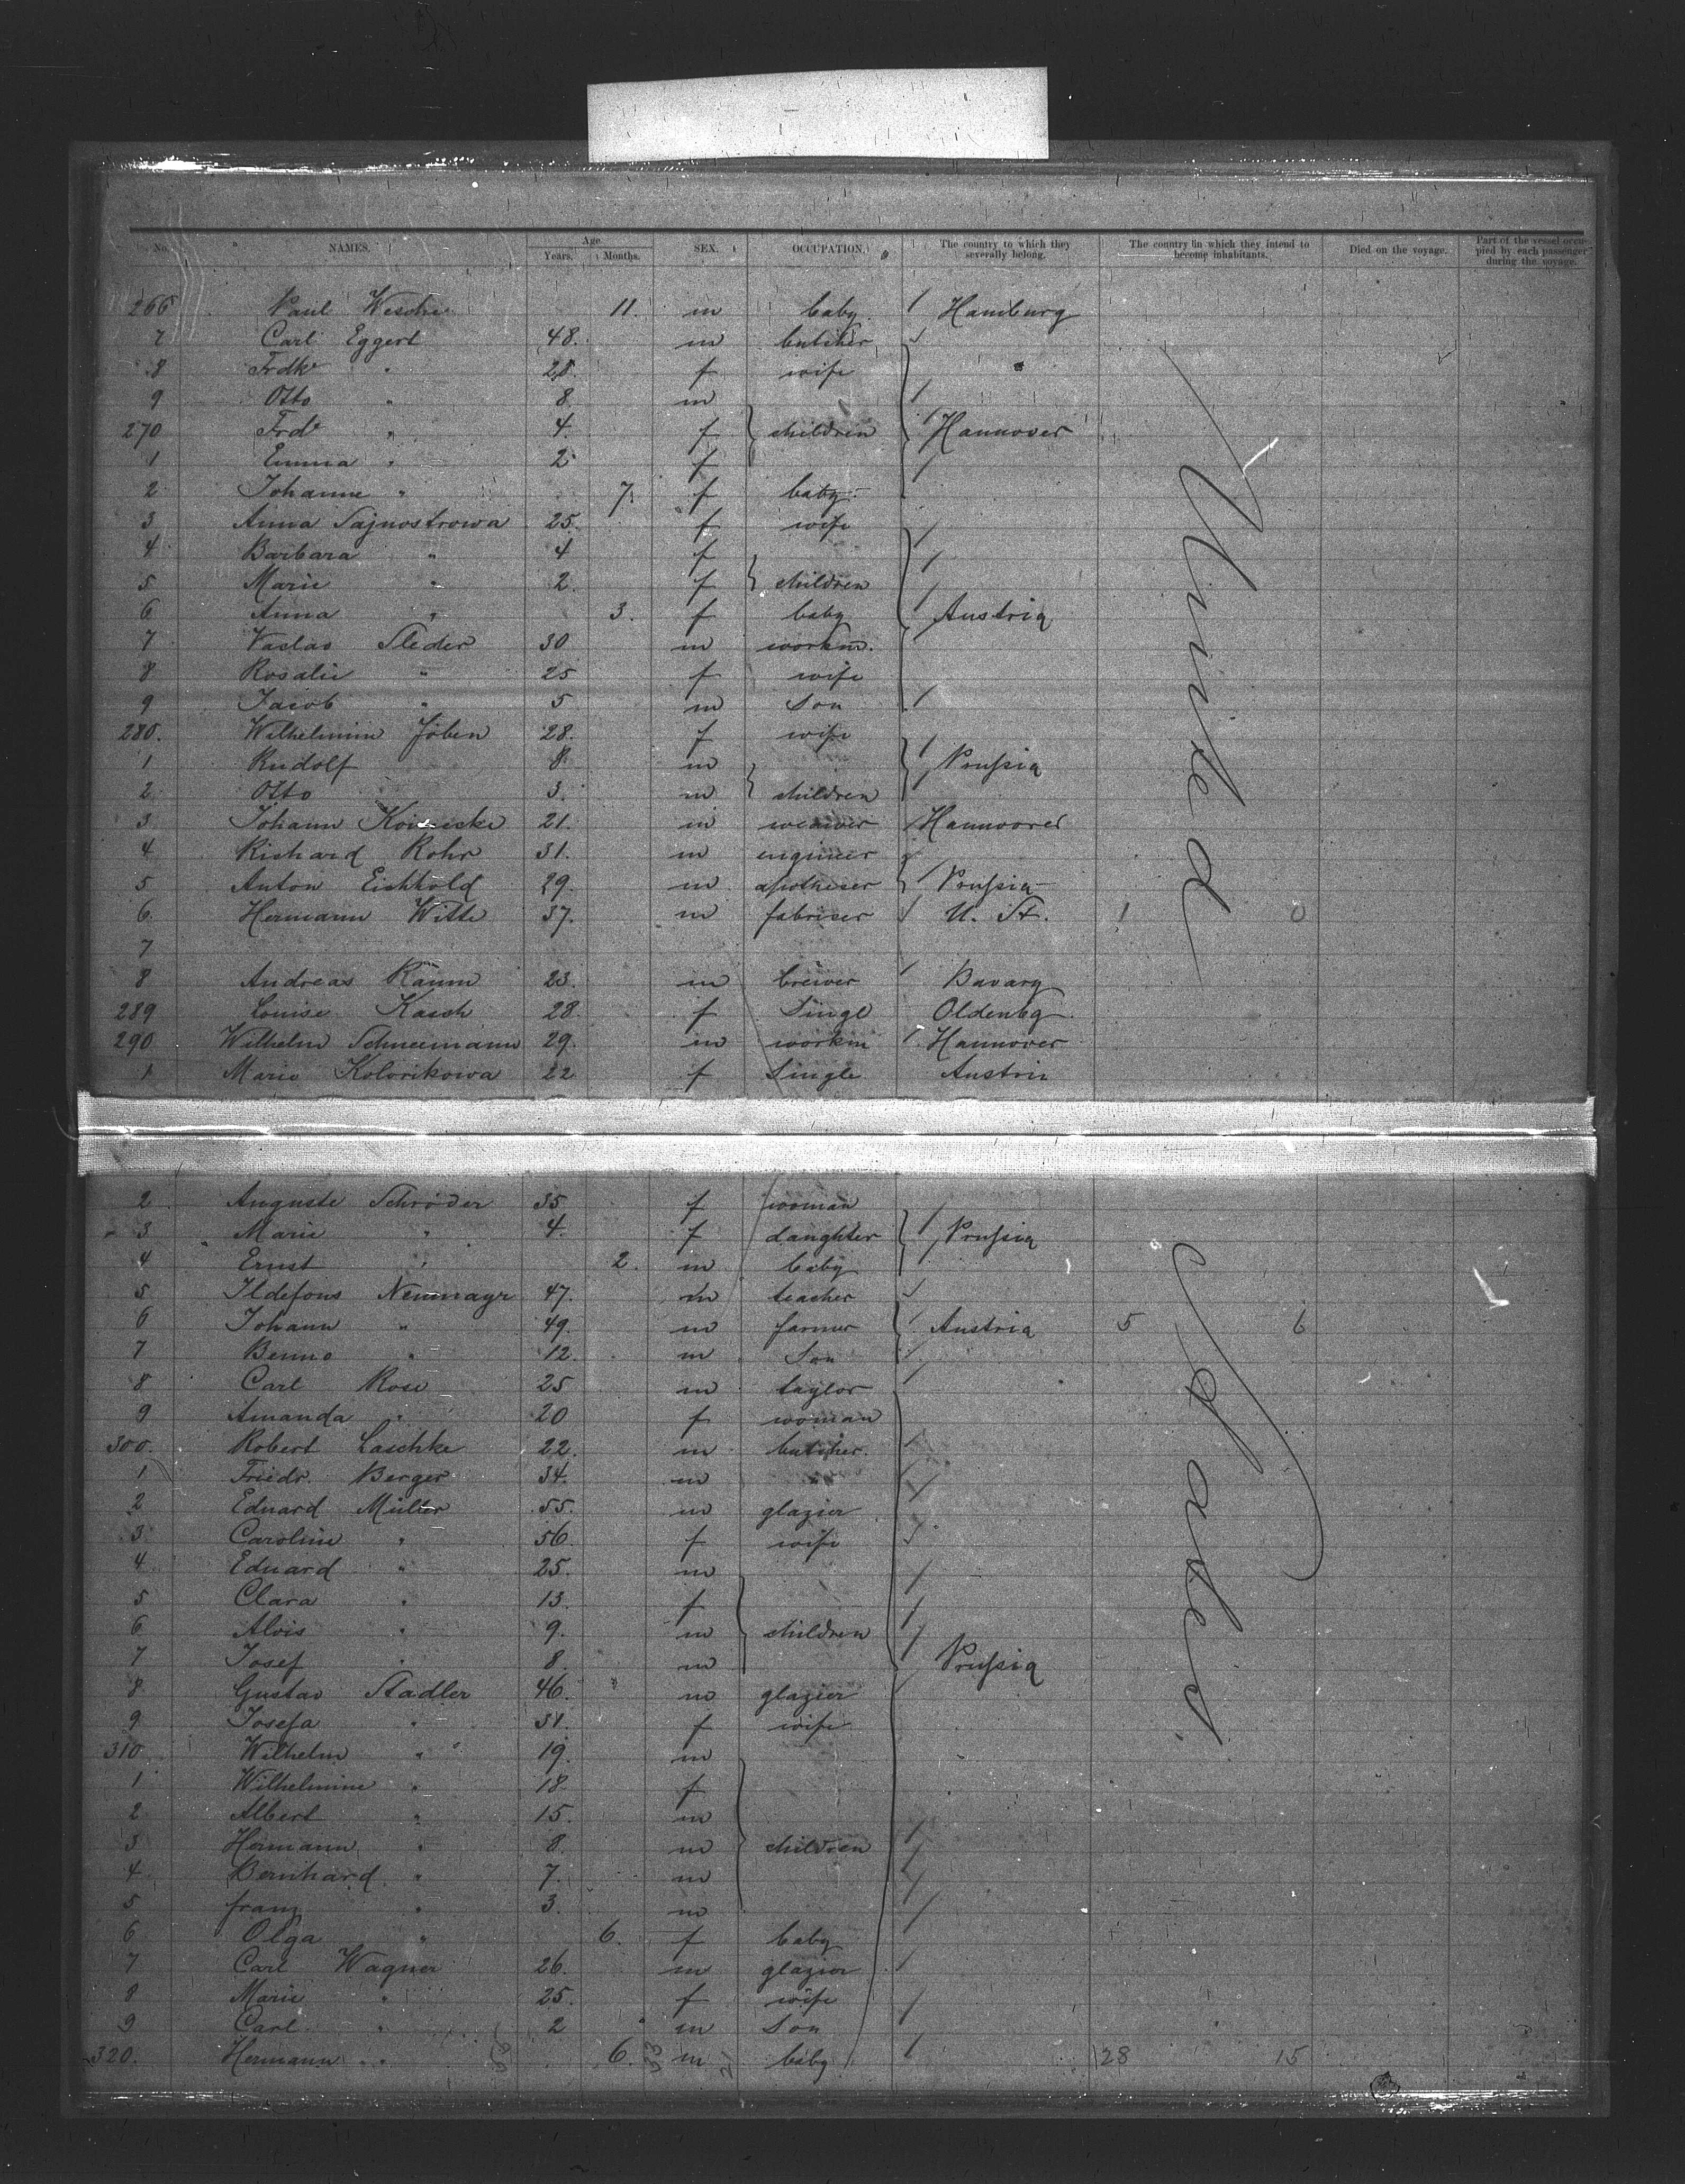 No. NAMES. Age. Years. Months. SEX. OCCUPATION. The country to which they severally belong. The country in which they intend to become inhabitants. Died on the voyage. Part of the vessel occupied by each passenger during the voyage.
266 Paul 11. m baby Hamburg
7 Carl Eggert 48. m butcher
8 Frdke " 28. f wife
9 Otto " 8. m
270 Frd " 4. f children Hannover
1 Emma " 2 f
2 Johanne " 7. f baby
3 Anna Sajnostrowa 25. f wife
4 Barbara " 4 f
5 Marie " 2. f children
6 Anna " 3. f baby Austria
7 Vaclav Sleder 30 m workm.
8 Rosalie " 25 f wife
9 Jacob " 5 m Son
280. Wilhelmine Jöben 28. f wife
1 Rudolf 8. m Prußia
2 Otto 3. m children
3 Johann 21. m weawer Hannover
4 Richard Rohr 31. m engineer
5 Anton Eichhold 29. m apotheser Prußia
6. Hermann Witte 37. m fabriser U. St. 1 0
7
8 Andreas Raum 23. m brewer Bavary
289 Louise Kasch 28. f Singl Oldenbg
290 Wilhelm Schneemann 29. m workm Hannover
1 Marie Kolorikowa 22 f Single Austria
2 Auguste Schröder 35 f woman
3 Marie " 4. f daughter Prußia
4 Ernst " 2. m baby
5 Ildefons Neumayr 47. m teacher
6 Johann " 49. m farmer Austria 5 6
7 Benno " 12. m Son
8 Carl Rose 25 m taylor
9 Amanda " 20 f woman
300. Robert Laschke 22. m butcher.
1 Friedr. Berger 34. m "
2 Eduard Müller 55. m glazier
3. Caroline " 56. f wife
4 Eduard " 25. m
5 Clara " 13. f
6 Alois " 9. m children
7 Josef " 8. m Prußia
8 Gustav Stadler 46. m glazier
9. Josefa " 31. f wife
310. Wilhelm " 19. m
1 Wilhelmine " 18. f
2 Albert " 15. m
3 Hermann " 8. m children
4 Bernhard " 7. m
5 franz " 3. m
6 Olga " 6. f baby
7 Carl Wagner 26. m glazier
8 Marie " 25. f wife
9 Carl " 2 m Son
320. Hermann " 6. m baby 28 15
United
States